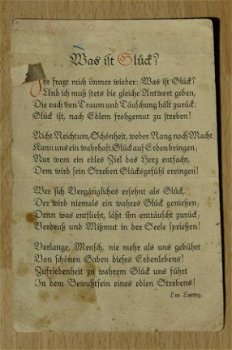 Was ist Glück?
Ihr fragt mich immer wieder: Was ist Glück?
Und ich muß stets die gleiche Antwort geben,
Die euch von Traum und Täuschung hält zurück:
Glück ist, nach Edlem frohgemut zu streben!
Nicht Reichtum, Schönheit, weder Rang noch Macht
Kann uns ein wahrhaft Glück auf Erden bringen;
Nur wem ein edles Ziel das Herz entfacht,
Dem wird sein Streben Glücksgefühl erringen!
Wer sich Vergängliches ersehnt als Glück,
Der wird niemals ein wahres Glück genießen;
Denn was entflieht, läßt ihn enttäuscht zurück;
Verdruß und Mißmut in der Seele sprießen!
Verlange, Mensch, nie mehr als uns gebührt
Von schönen Gaben dieses Erdenlebens!
Zufriedenheit zu wahrem Glück uns führt
In dem Bewußtsein eines edlen Strebens!